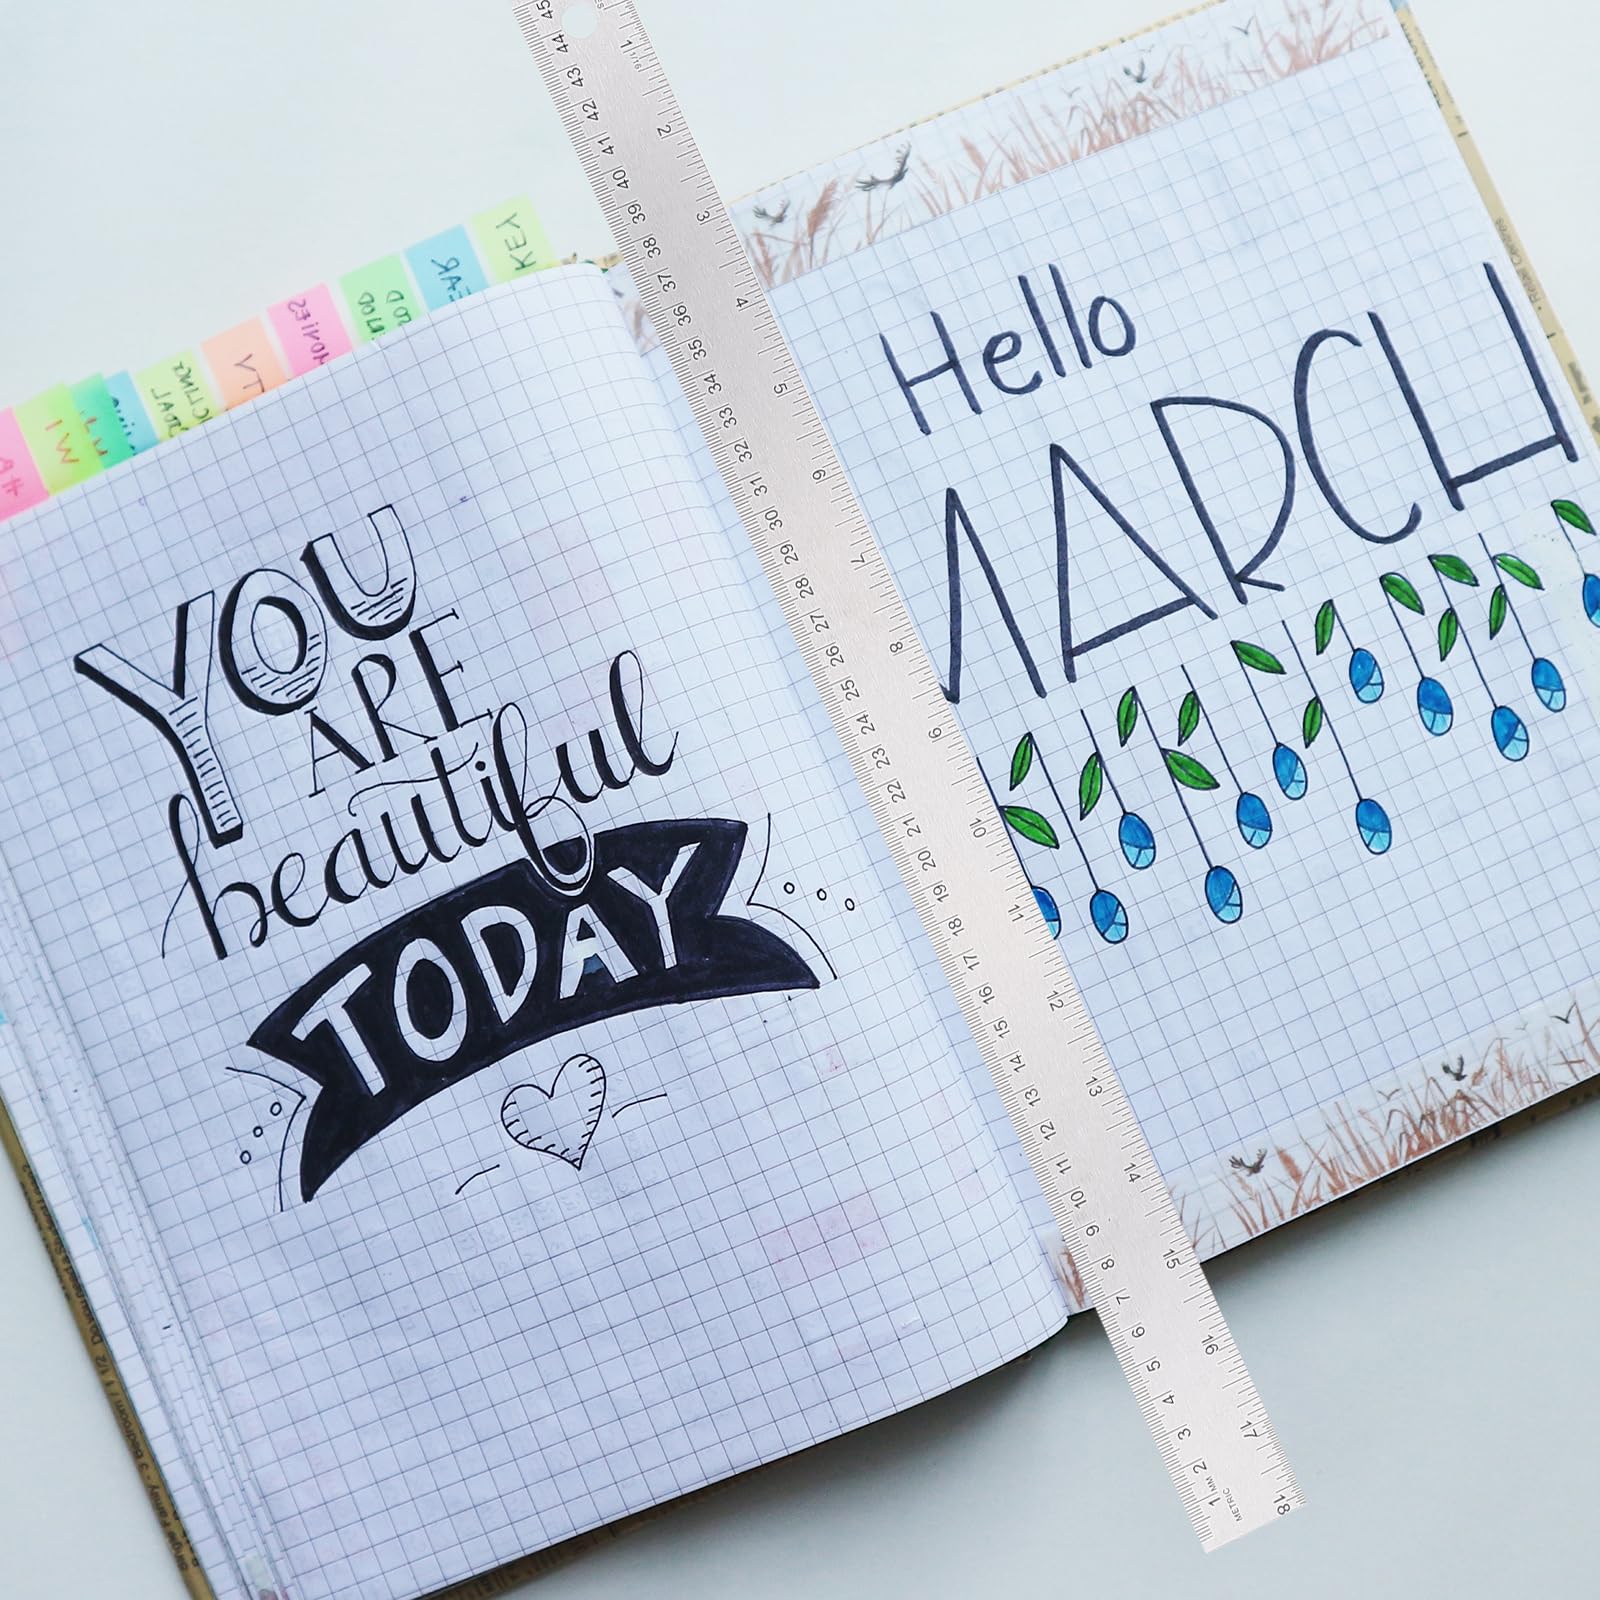 YOU
ARE
beautiful
TODAY
Hello
MARCH
KEY
45 44 43 42 41 40 39 38 37 36 35 34 33 32 31 30 29 28 27 26 25 24 23 22 21 20 19 18 17 16 15 14 13 12 11 10 9 8 7 6 5 4 3 2 1 MM
METRIC
1 2 3 4 5 6 7 8 9 10 11 12 13 14 15 16 17 18